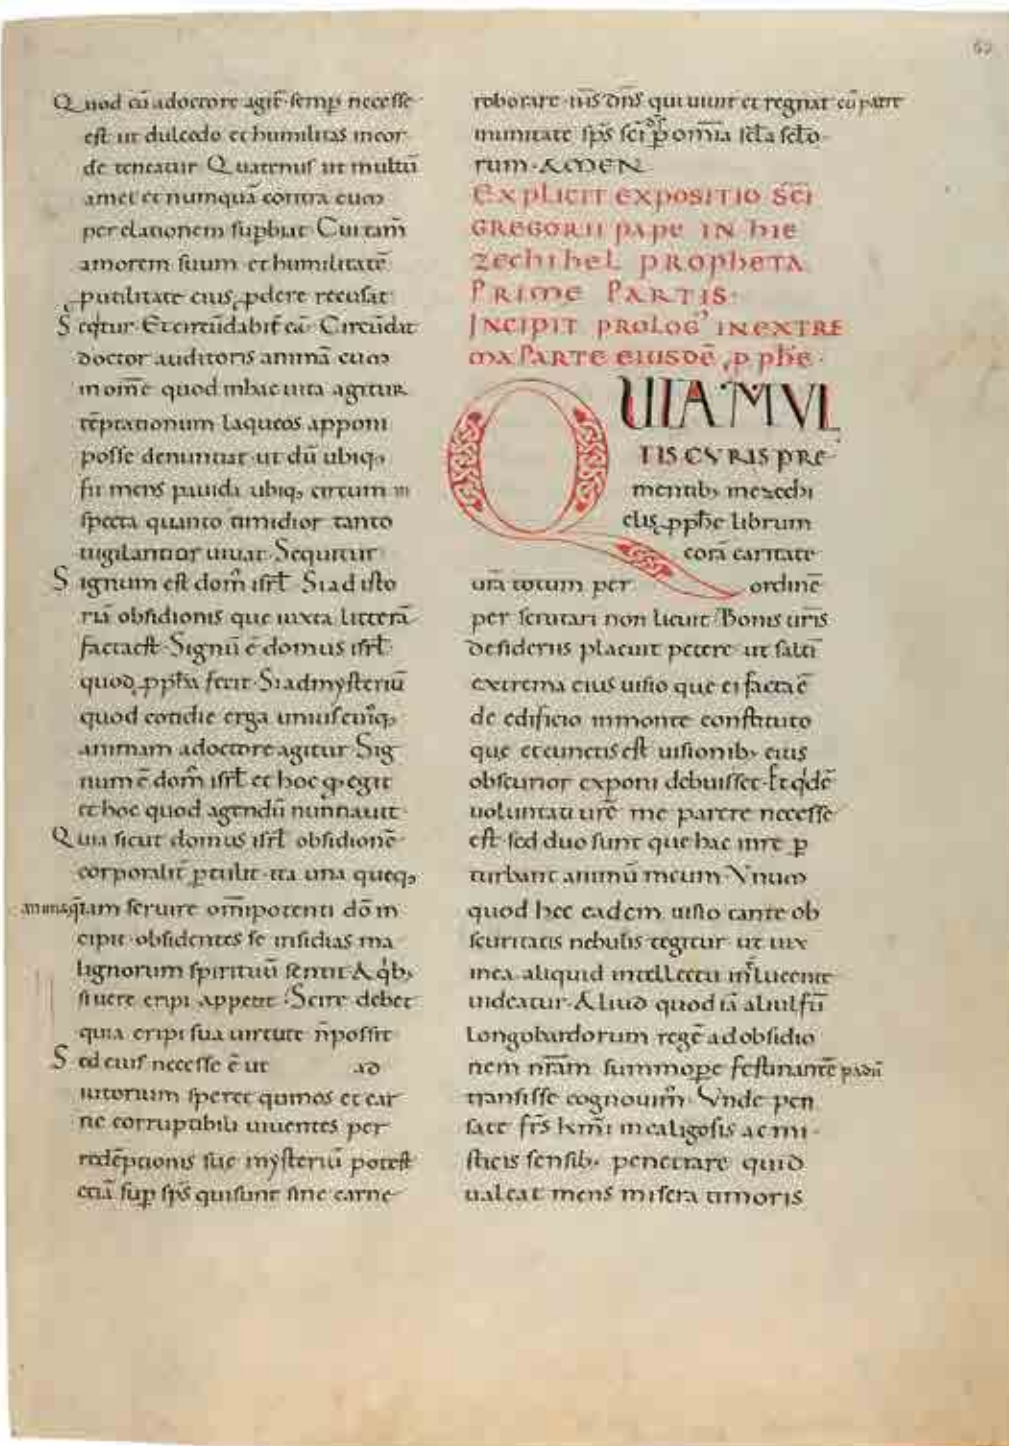 Quod cū adoctore agit̄ semp necesse
est ut dulcedo et humilitas incor
de teneatur. Quatenus ut multū
amet et numquā contra eum
per elationem supbiat. Cui tam̄
amorem suum et humilitatē
putilitate eius pdere recusat.
Seqt̄ur. Et circūdabit̄ eā. Circūdat
doctor auditoris animā cum
inom̄e quod inhac uita agitur
tēptationum laqueos apponi
posse denuntiat. ut dū ubiq,
fit mens pauida ubiq, circum in
specta quanto timidior tanto
uigilantior uiuat. Sequitur
Signum est dom̄ isrl̄. Si ad isto
riā obsidionis que iuxta litterā
facta est. Signū ē domus isrl̄.
quod pph̄a fecit. Si ad mysteriū
quod cotidie erga uniuscuiq,
animam adoctore agitur. Sig
num ē dom̄ isrl̄ et hoc q egit
et hoc quod agendū nuntiauit.
Quia sicut domus isrl̄ obsidionē
corporalit̄ ptulit. ita una queq,
anima q̄ iam seruire om̄ipotenti dō in
cipit. obsidentes se insidias ma
lignorum spirituū sentit. A qb,
si uere eripi appetit. Scire debet
quia eripi sua uirtute n̄ possit
Sed eius necesse ē ut ad
iutorium speret qui nos et car
ne corruptibili uiuentes per
redēptionis sue mysteriū potest
etiā sup sp̄s qui sunt sine carne
roborare. iħs dn̄s qui uiuit et regnat cū patre
inunitate sp̄s sc̄i ds̄ p om̄ia sc̄la sc̄lo
rum. AMEN
EXPLICIT EXPOSITIO SC̄I
GREGORII PAPE IN HIE
ZECHIHEL PROPHETA
PRIME PARTIS.
INCIPIT PROLOG' IN EXTRE
MA PARTE EIUSDĒ PPHE.
QUIA MUL
TIS CURIS PRE
mentib, inezechi
elis pph̄e librum
corā caritate
ur̄a totum per ordinē
per scrutari non licuit. Bonis ur̄is
desideriis placuit petere ut saltī
extrema eius uisio que ei facta ē
de edificio inmonte constituto
que et cunctis est uisionib, eius
obscurior exponi debuisset. Et qdē
uoluntati ur̄e me parere necesse
est. sed duo sunt que hac inre p
turbant animū meum. Vnum
quod hec eadem uisio tante ob
scuritatis nebulis tegitur. ut uix
inea aliquid intellectu int̄lucente
uideatur. Aliud quod iā aliulfū
Longobardorum regē ad obsidio
nem nr̄am summope festinantē padū
transisse cognouim̄. Vnde pen
sate fr̄s km̄i incaligosis ac mi
sticis sensib, penetrare quid
ualeat mens misera timoris